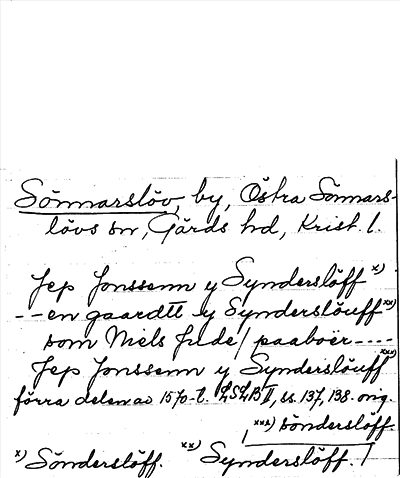 Sönnarslöv, by, Östra Sönnars-
lövs sn, Gärds hd, Krist. l.
Jep Jonssenn y Synderslöff x)
--en gaardtt y Synderslöuff xx)
som Niels Jude / paaboer----
Jep Jonssenn y Synderslöuff xxx)
förra delen av 1570-t. LSLB II, ss. 137, 138. orig.
xxx) Sönderslöff.
x) Sönderslöff. xx) Synderslöff. /